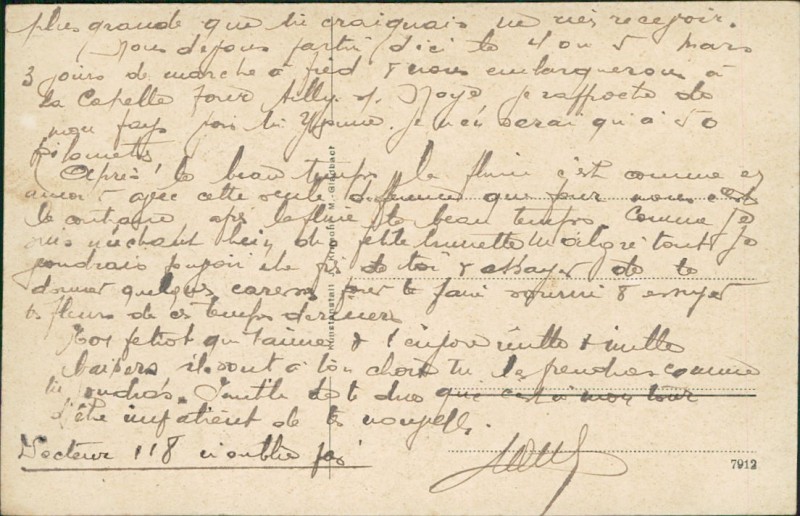 plus grande que tu craignais ne rien recevoir.
Nous devons partir d'ici le 4 ou 5 Mars
3 jours de marche à pied & nous embarquerons à
La Capelle pour Ailly s/ Noye je rapproche de
mon pays vois tu je n'en serai qu'à 50
kilomètres
Après le beau temps la pluie c'est comme en
amour avec cette seule différence que pour nous c'est
le contraire après la pluie le beau temps Comme je
suis méchant hein dis petite malgré tout je
voudrais pouvoir être près de toi & essayer de te
donner quelques caresses pour te faire sourire & essuyer
tes pleurs de ces temps derniers
Ton petiot qui t'aime & t'envoie mille & mille
baisers ils sont à ton choix tu les prendras comme
tu voudras. Inutile de te dire que c'est à mon tour
d'être impatient de tes nouvelles.
Secteur 118 n'oublie pas
7912